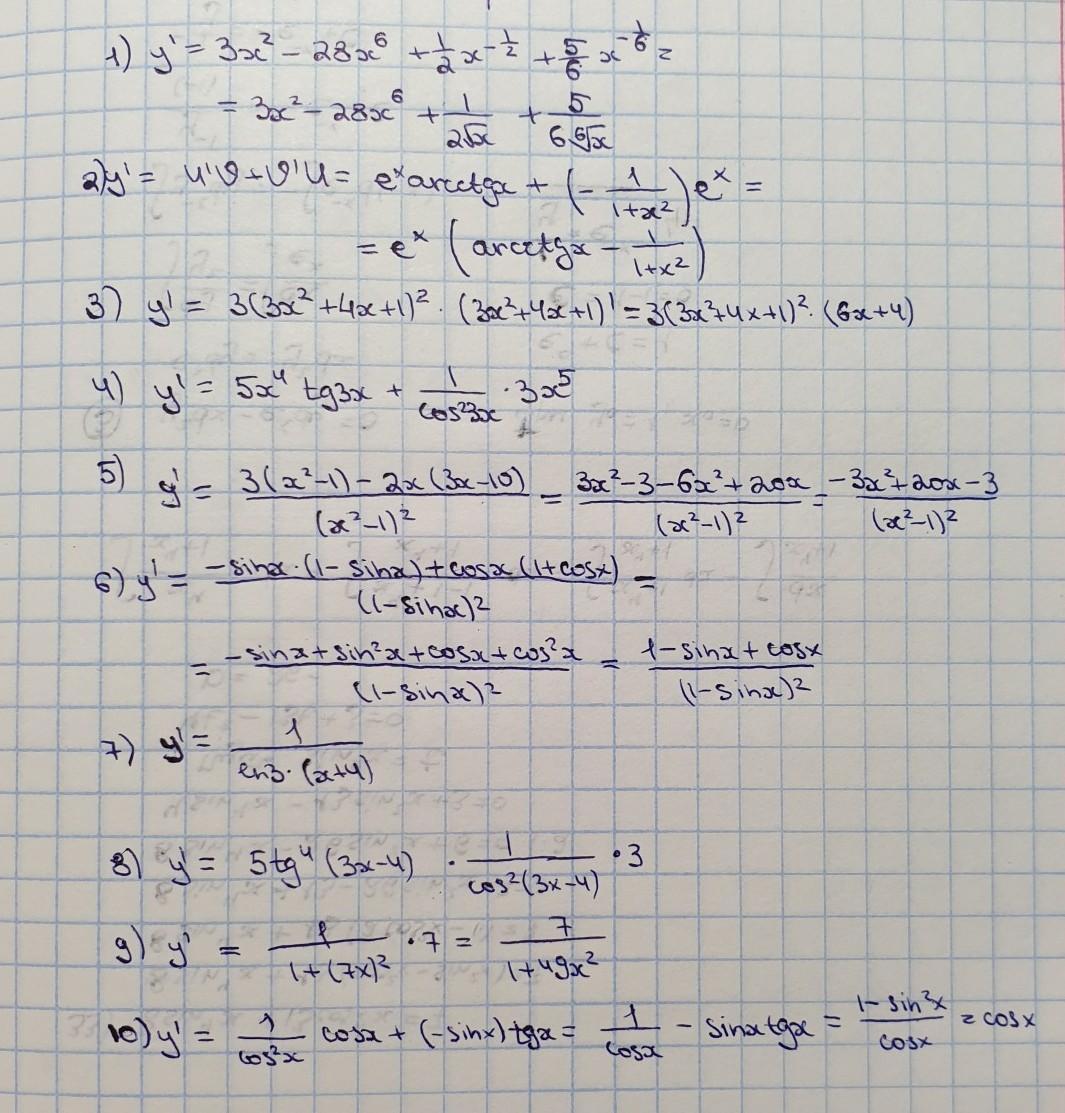 1) y' = 3x² - 28x⁶ + 1/2 x^(-1/2) + 5/6 x^(-1/6) =
= 3x² - 28x⁶ + 1/(2√x) + 5/(6 ⁶√x)
2) y' = u'v + v'u = eˣ arcctgx + (- 1/(1+x²)) eˣ =
= eˣ (arcctgx - 1/(1+x²))
3) y' = 3(3x² + 4x + 1)² · (3x² + 4x + 1)' = 3(3x² + 4x + 1)² · (6x + 4)
4) y' = 5x⁴ tg3x + 1/(cos²3x) · 3x⁵
5) y' = (3(x² - 1) - 2x(3x - 10))/(x² - 1)² = (3x² - 3 - 6x² + 20x)/(x² - 1)² = (-3x² + 20x - 3)/(x² - 1)²
6) y' = (-sinx · (1 - sinx) + cosx (1 + cosx))/(1 - sinx)² =
= (-sinx + sin²x + cosx + cos²x)/(1 - sinx)² = (1 - sinx + cosx)/(1 - sinx)²
7) y' = 1/(ln3 · (x+4))
8) y' = 5tg⁴(3x-4) · 1/(cos²(3x-4)) · 3
9) y' = 1/(1+(7x)²) · 7 = 7/(1+49x²)
10) y' = 1/(cos²x) cosx + (-sinx) tgx = 1/cosx - sinx tgx = (1 - sin²x)/cosx = cosx